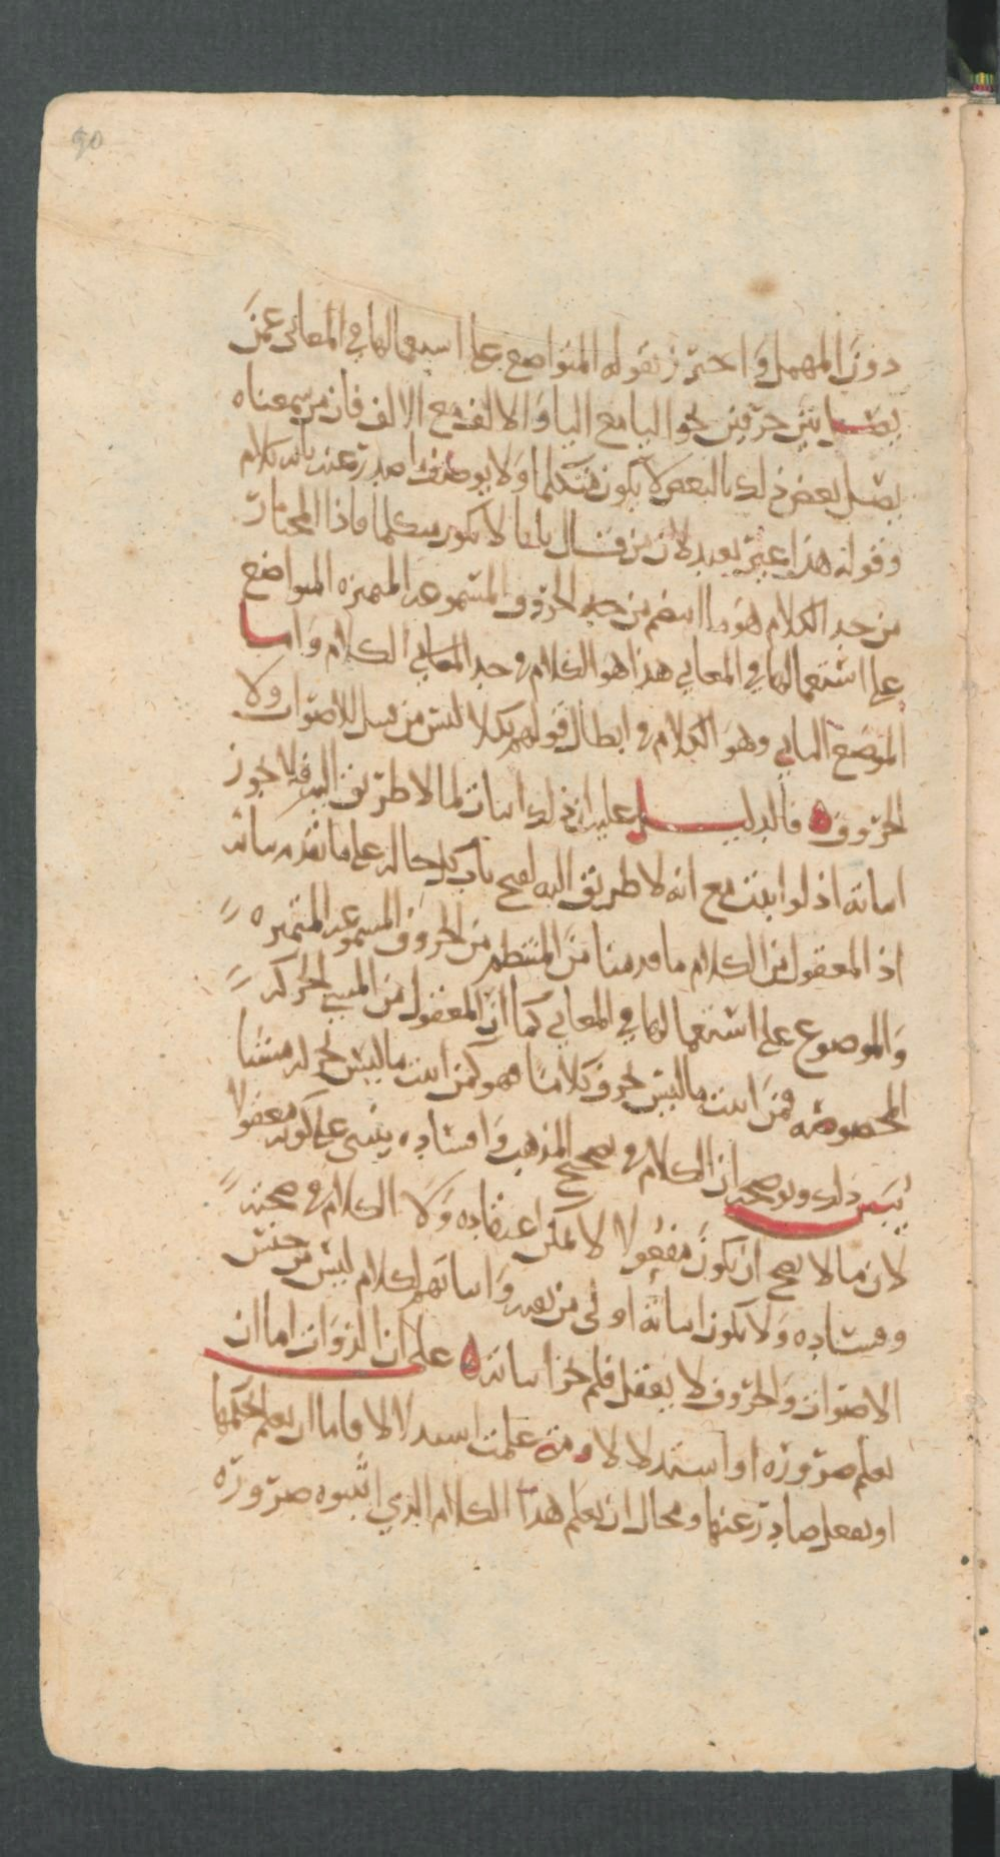 90
دون المهمل واحترز بقوله المتواضع على استعمالها في المعاني عمن
يصل بين حرفين نحو اليا مع اليا والالف مع الالف فان من سمعناه
يصل بعض ذلك بالبعض لا يكون متكلما ولا يوصف ما صدر عنه بانه كلام
وقوله هذا غير بعيد لان من قال يايا لا يكون متكلما فاذا المختار
من حد الكلام هو ما انتظم من الحروف المسموعه المتميزه المتواضع
على استعمالها في المعاني هذا هو الكلام في حد الكلام واما
الموضع الثاني وهو الكلام في ابطال قولهم بكلام ليس من قبيل الاصوات ولا
الحروف فالدليل على ان ذلك اثبات لما لا طريق اليه فلا يجوز
اثباته اذ لو اثبت مع انه لا طريق اليه لفتح باب كل جهاله على ما تقدم بيانه
اذ المعقول من الكلام ما قدمنا من المنتظم من الحروف المسموعه المتميزه
والموضوع على استعمالها في المعاني كما ان المعقول من المشي الحركه
المخصوصه فمن اثبت ما ليس بحرف كلاما فهو كمن اثبت ما ليس بحركه مشيا
يبين ذلك ويوضحه ان الكلام في تصحيح المذهب وافساده ينبني على كونه معقولا
لان ما لا يصح ان يكون معقولا لا يمكن اعتقاده ولا الكلام في صحته
وفساده ولا يكون اثباته اولى من نفيه واثباتهم لكلام ليس من جنس
الاصوات والحروف لا يعقل فلم يجز اثباته على ان الذوات اما ان
تعلم ضروره او استدلالا ومتى علمت استدلالا فاما ان تعلم بحكمها
او بفعل صادر عنها ومحال ان يعلم هذا الكلام الذي اثبتوه ضروره